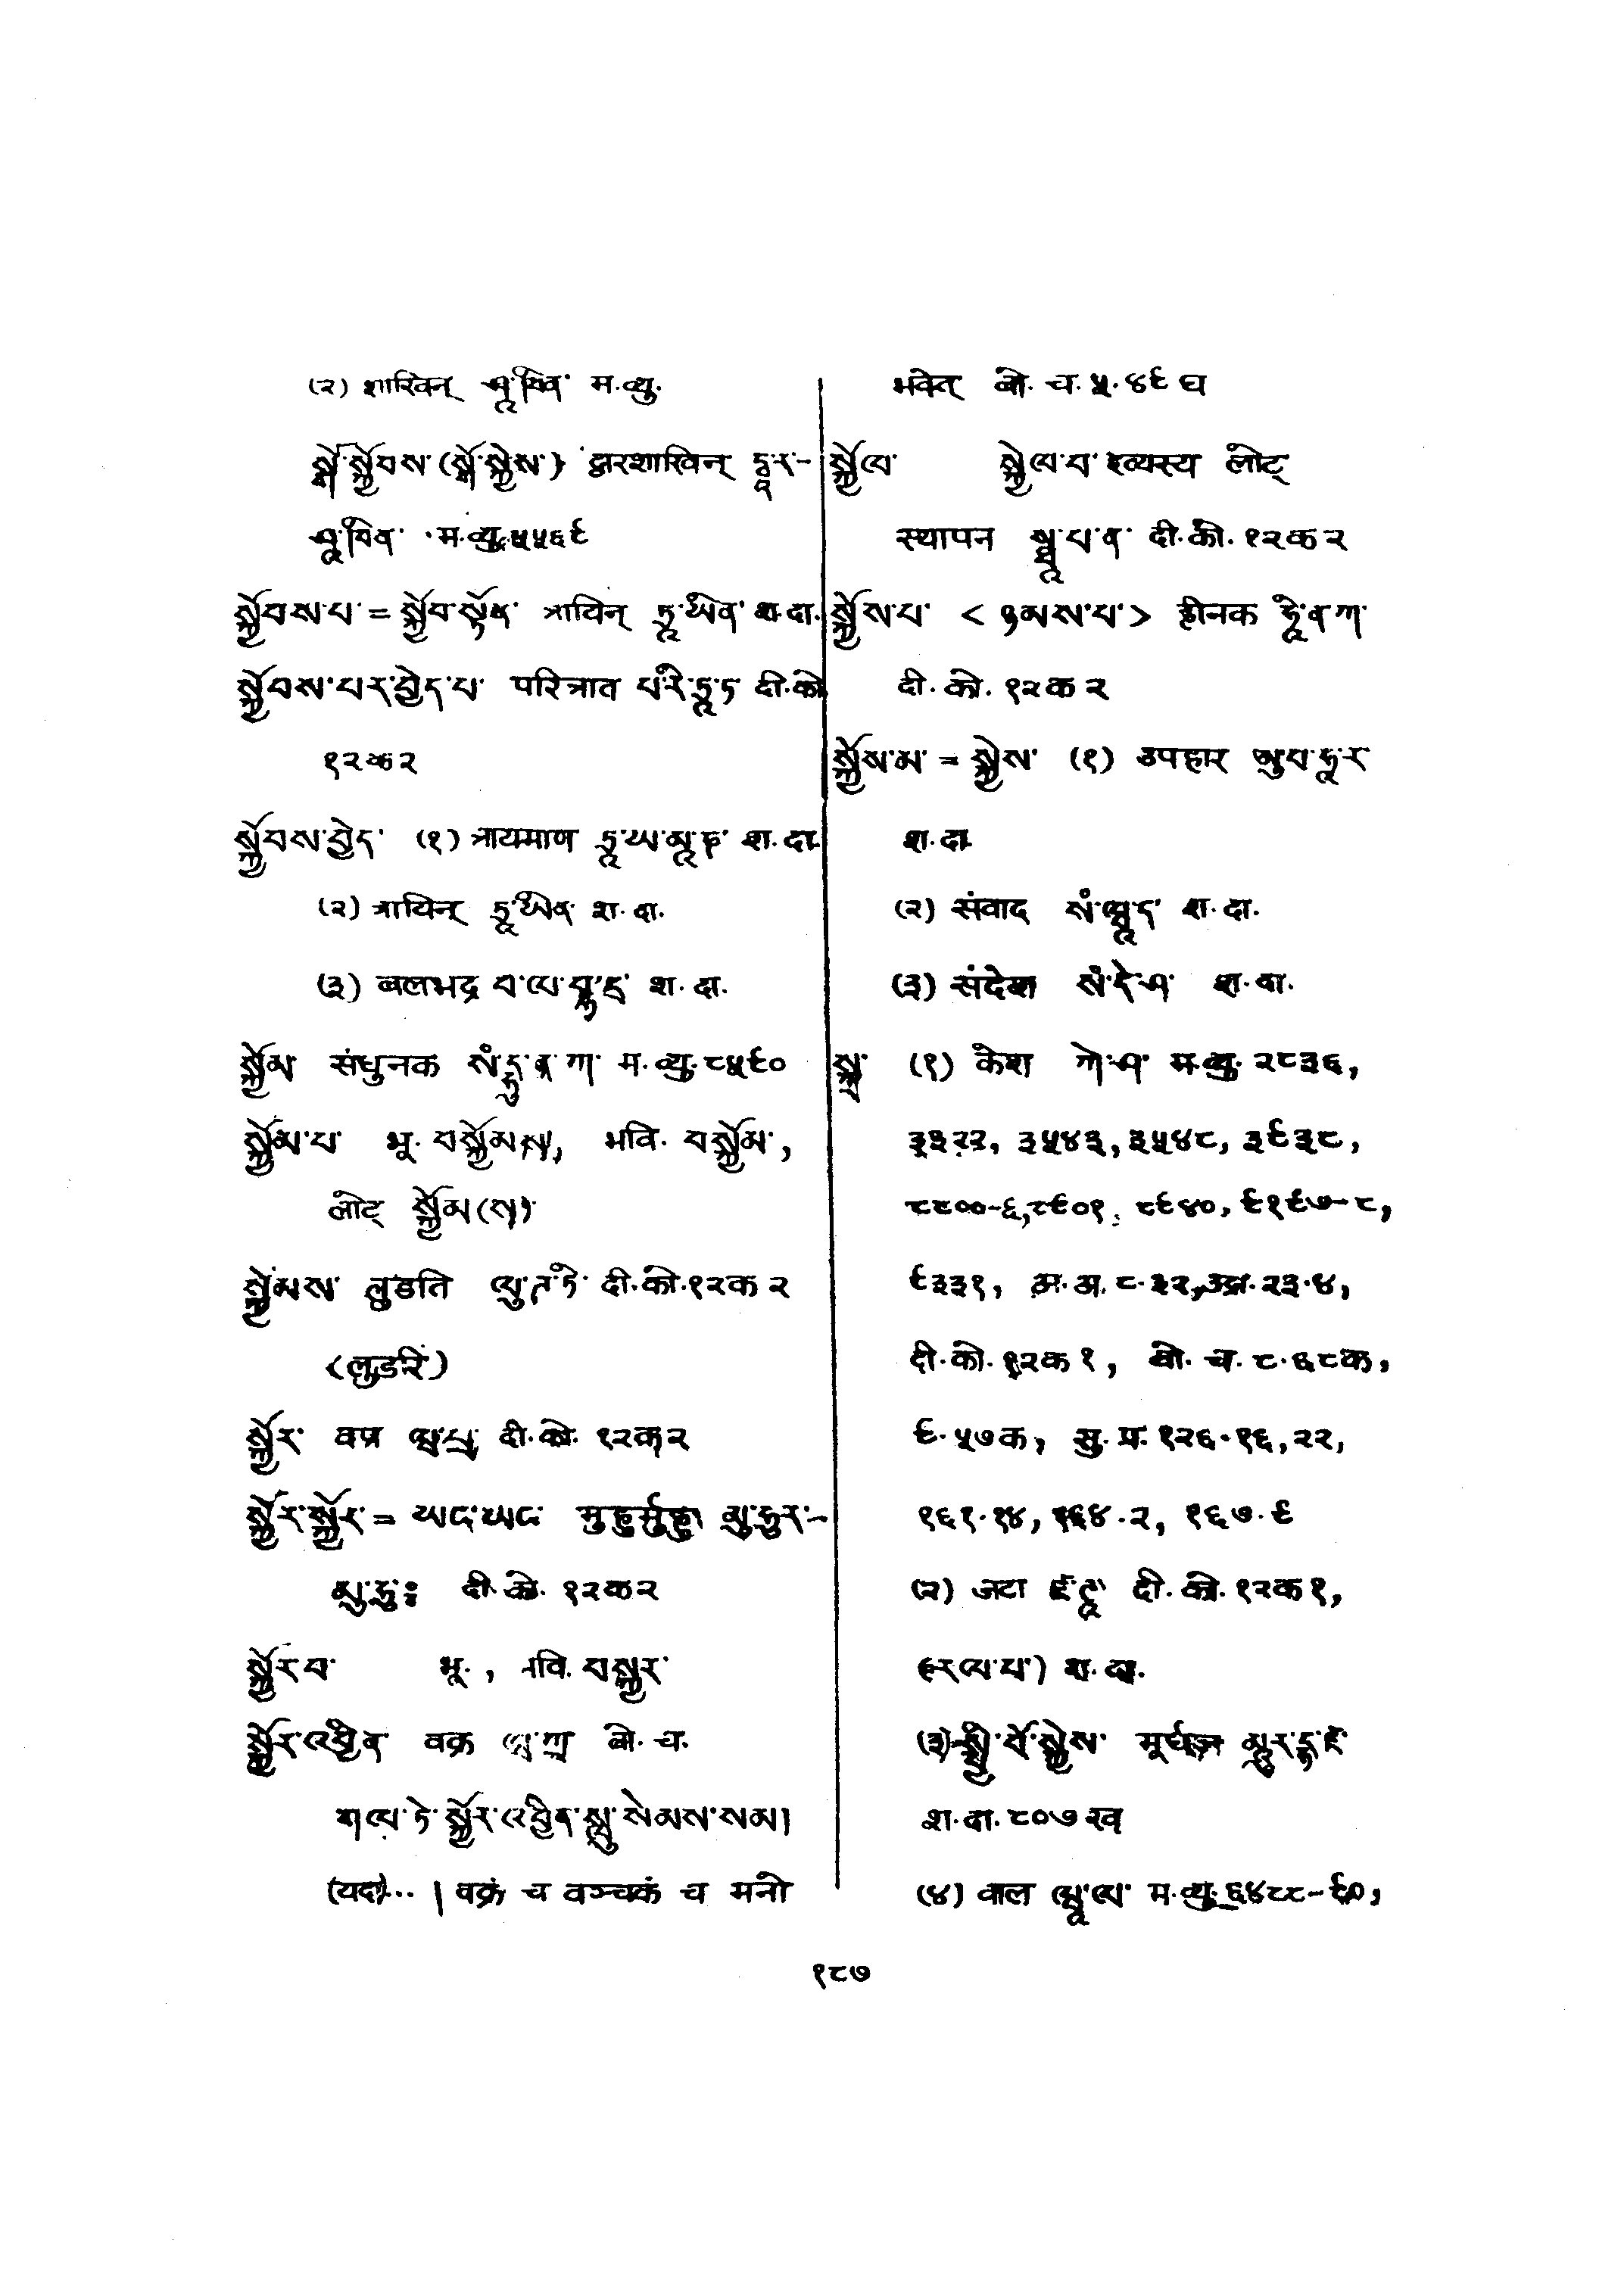 (२) शाखिन् ཤཱ་ཁིན་ म.व्यु.
སྒོ་སྐྱོབས་(སྒོ་སྐྱེས་) द्वारशाखिन् དྭཱ་ར་-
ཤཱ་ཁིན་ म.व्यु.५५६९
སྐྱོབས་པ་ = སྐྱོབ་སྟོན་ त्रायिन् ཏྲཱ་ཡིན་ श.दा.
སྐྱོབས་པར་བྱེད་པ་ परित्रात པ་རི་ཏྲཱ་ཏ दी.को
१२क२
སྐྱོབས་བྱེད་ (१) त्रायमाण ཏྲཱ་ཡ་མཱ་ཎ་ श.दा.
(२) त्रायिन् ཏྲཱ་ཡིན་ श.दा.
(३) बलभद्र བ་ལ་བྷ་དྲ་ श.दा.
སྐྱོམ་ संधुनक སཾ་དྷུ་ན་ཀ་ म.व्यु.८५९०
སྐྱོམ་པ་ भू. བསྐྱོམས་, भवि. བསྐྱོམ་,
लोट् སྐྱོམ(ས)་
སྐྱོམས་ लुडति ལུ་ཌ་ཏི་ दी.को.१२क२
(लुडरिं)
སྐྱོར་ वप्र ཝ་པྲ་ दी.को. १२क२
སྐྱོར་སྐྱོར་ = ཡང་ཡང་ मुहुर्मुहुः མུ་ཧུར་-
མུ་ཧུཿ दी.को. १२क२
སྐྱོར་བ་ भू., भवि. བསྐྱར་
སྐྱོར་འབྱིན་ वक्र ཝ་ཀྲ་ बो.च.
གལ་ཏེ་སྐྱོར་འབྱིན་སླུ་སེམས་སམ།
(यदा)... | वक्रं च वञ्चकं च मनो
भवेत् बो.च.५.४९घ
སྐྱོལ་ སྐྱེལ་བ་ इत्यस्य लोट्
स्थापन སྠཱ་པ་ན་ दी.को.१२क२
སྐྱོས་པ་ < ཉམས་པ་ > हीनक ཧཱི་ན་ཀ་
दी.को.१२क२
སྐྱོས་མ་ = སྐྱེས་ (१) उपहार ཨུ་པ་ཧཱ་ར
श.दा.
(२) संवाद སཾ་ཝཱ་ད་ श.दा.
(३) संदेश སཾ་དེ་ཤ་ श.दा.
སྐྲ་ (१) केश ཀེ་ཤ་ म.व्यु.२८३६,
३३२२, ३५४३, ३५४८, ३९३८,
८८००-६, ८९०१, ८९४०, ९१९७-८,
९३३१, अ.अ.८.३२, उद्रा.२३.४,
दी.को.१२क१, बो.च.८.६८क,
९.५७क, सु.प्र.१२६.१६,२२,
१६१.१४, १६४.२, १६७.९
(२) जटा ཛ་ཊཱ་ दी.को.१२क१,
(རལ་པ་) श.दा.
(३) སྐྲ་སྤྱི་བོ་སྐྱེས་ मूर्धज མཱུར་དྷ་ཛ་
श.दा.८०७ख
(४) वाल ཝཱ་ལ་ म.व्यु.६४८८-९०,
१८७